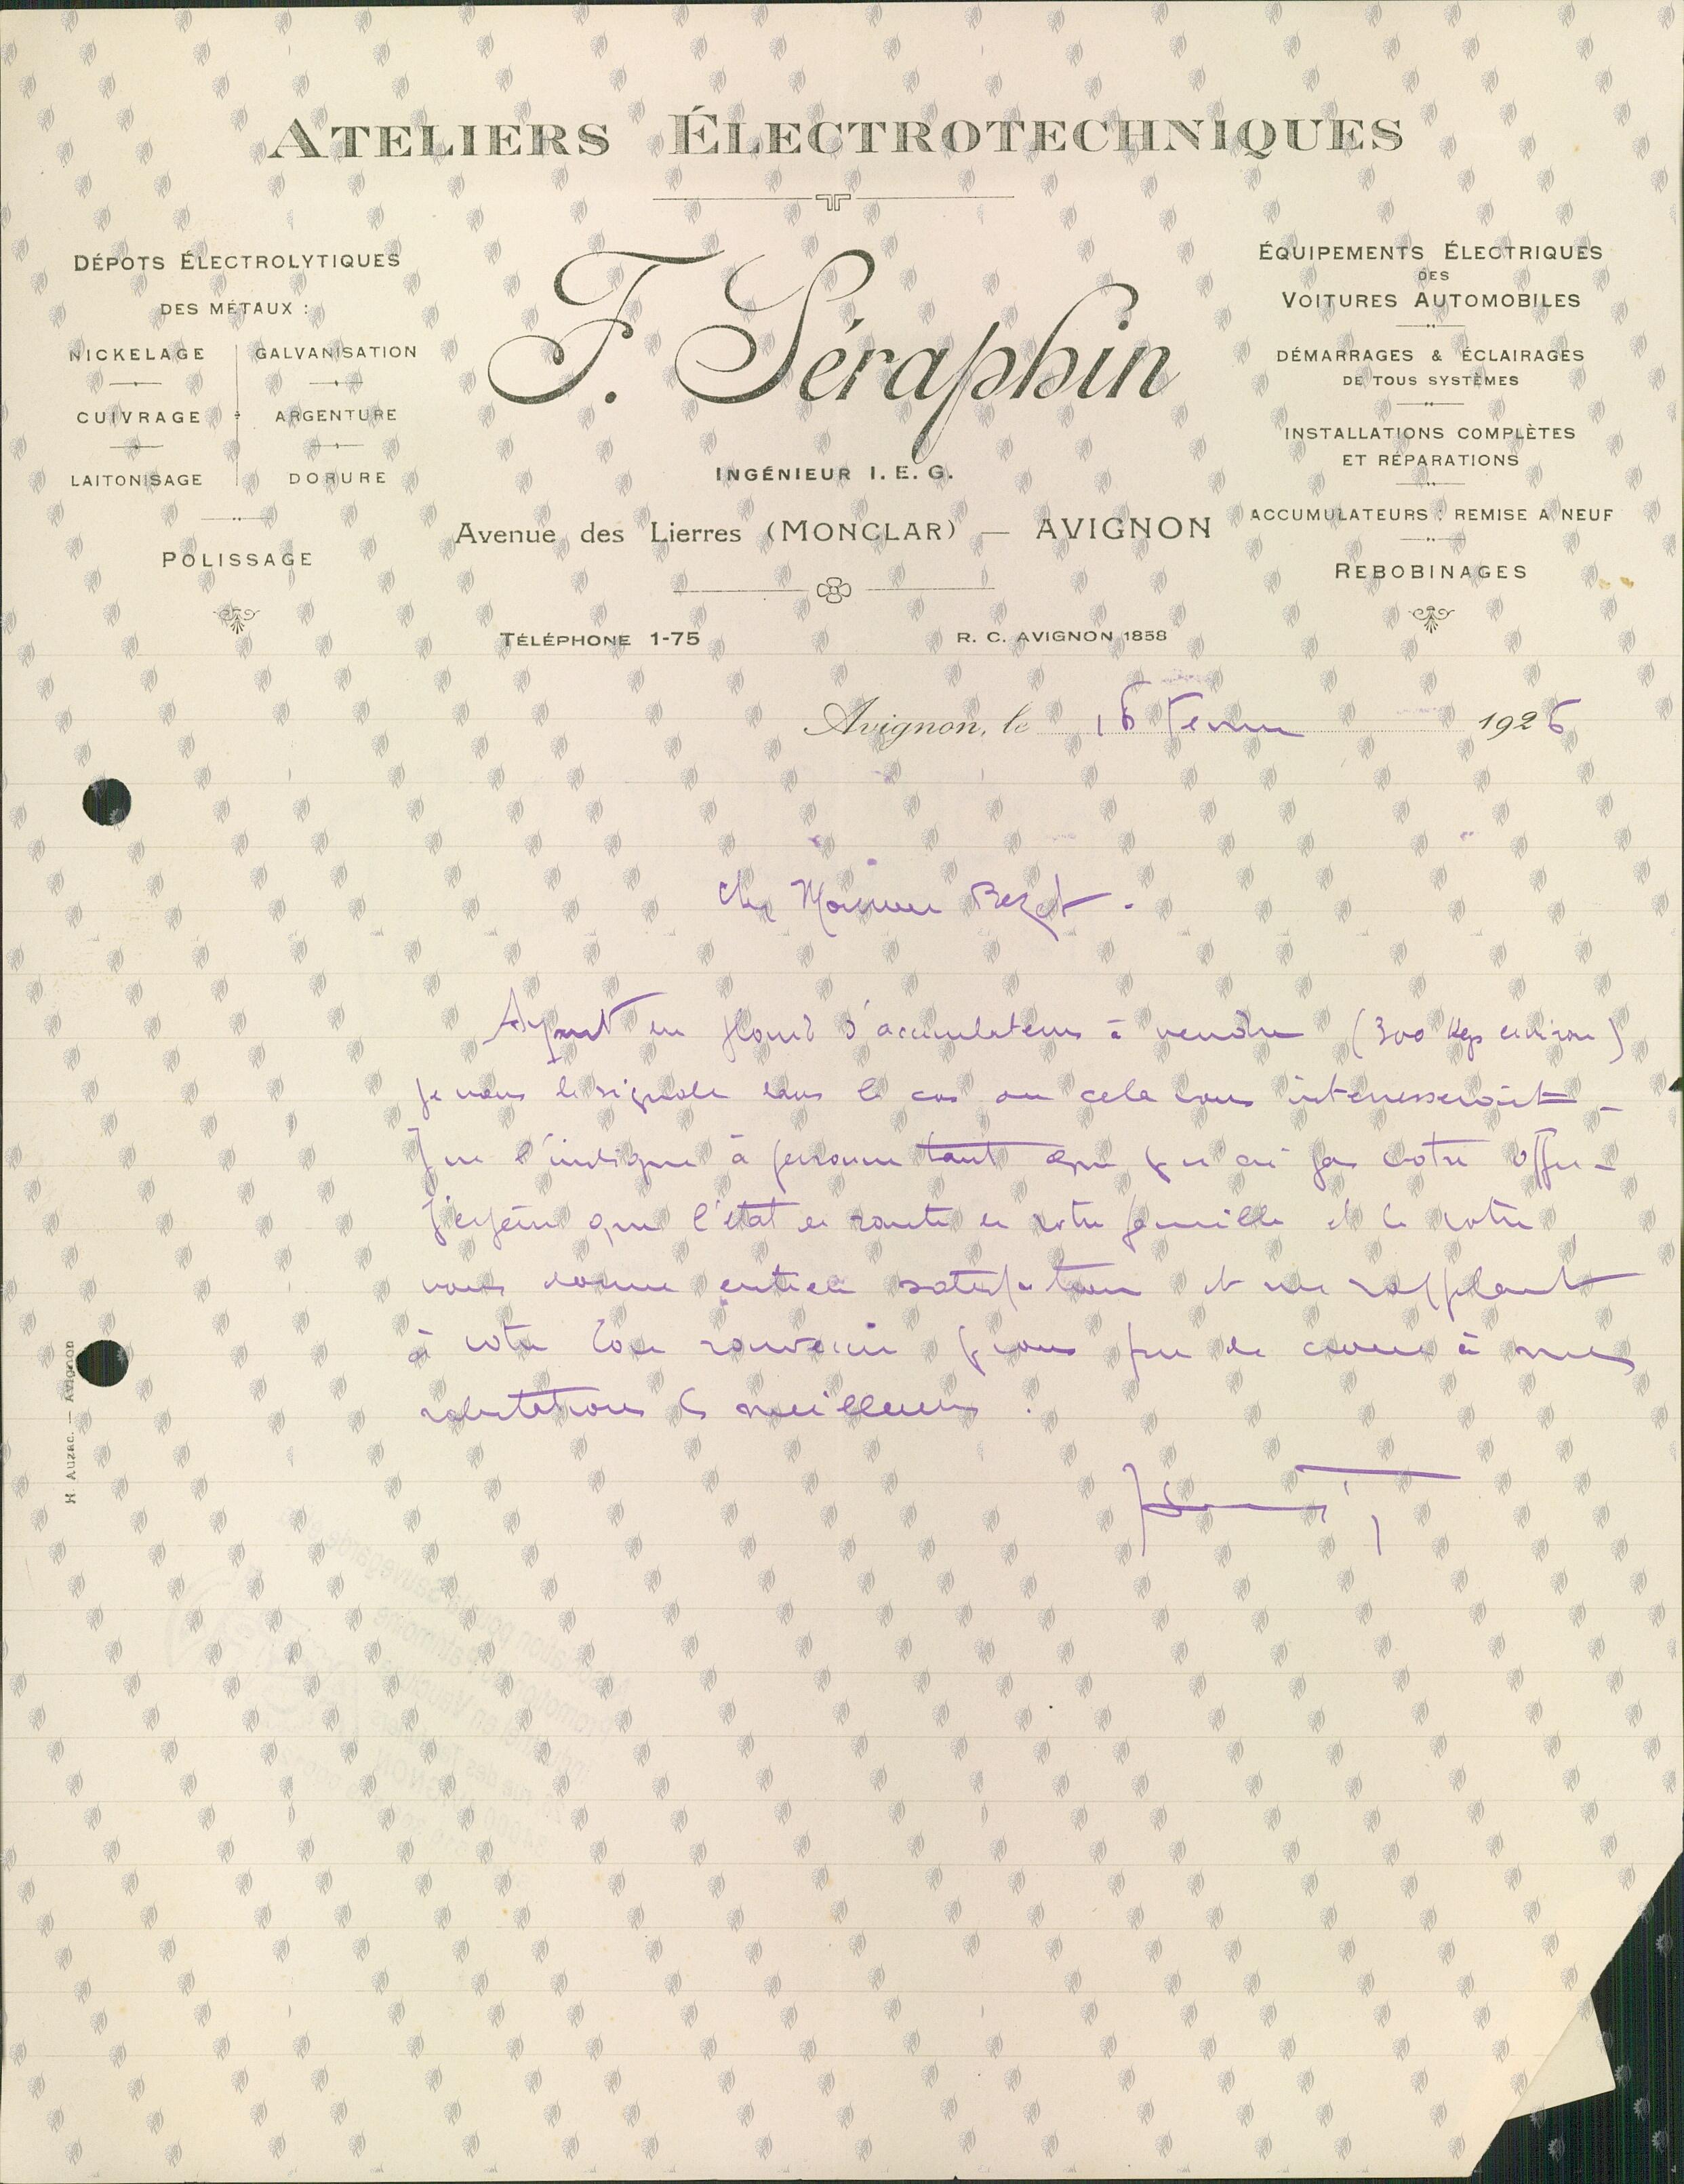 ATELIERS ÉLECTROTECHNIQUES
DÉPOTS ÉLECTROLYTIQUES
DES MÉTAUX :
NICKELAGE
GALVANISATION
CUIVRAGE
ARGENTURE
LAITONISAGE
DORURE
POLISSAGE
F. Séraphin
INGÉNIEUR I. E. G.
Avenue des Lierres (MONCLAR) — AVIGNON
TÉLÉPHONE 1-75
R. C. AVIGNON 1858
ÉQUIPEMENTS ÉLECTRIQUES
DES
VOITURES AUTOMOBILES
DÉMARRAGES & ÉCLAIRAGES
DE TOUS SYSTÈMES
INSTALLATIONS COMPLÈTES
ET RÉPARATIONS
ACCUMULATEURS : REMISE A NEUF
REBOBINAGES
Avignon, le 16 1926
Cher Monsieur
Ayant du plomb d'accumulateurs à vendre (300 kgs environ)
je vous le signale dans le cas ou cela vous interesserait -
Je ne l'indique à personne tant que je n'ai pas votre offre -
J'espère que l'état de santé de votre famille et le votre
vous donne entière satisfaction et me rappelant
à votre bon souvenir je vous prie de croire à mes
salutations les meilleures.
H. Auzac. — Avignon